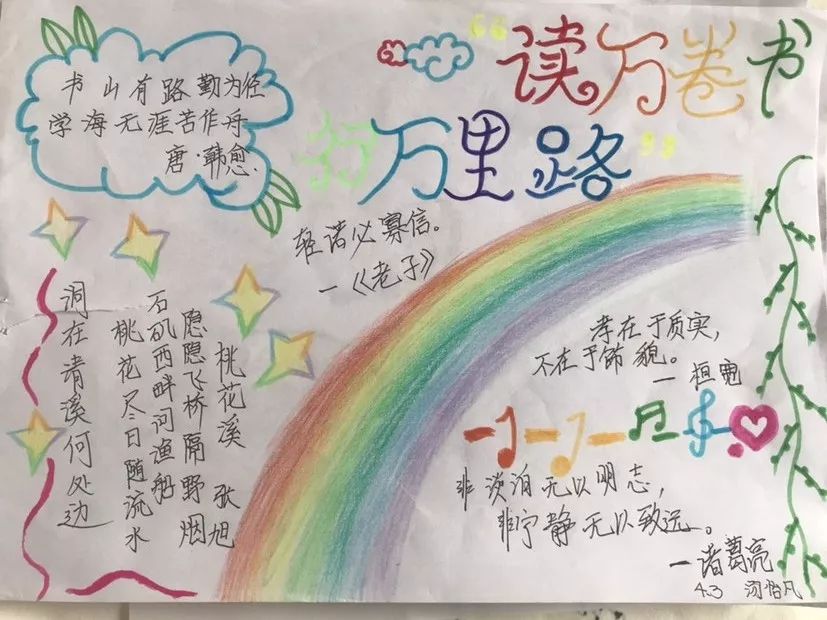 “读万卷书
行万里路”
书山有路勤为径
学海无涯苦作舟
唐·韩愈.
轻诺必寡信。
—《老子》
桃花溪 张旭
隐隐飞桥隔野烟
石矶西畔问渔船
桃花尽日随流水
洞在清溪何处边
孝在于质实，
不在于饰貌。
—桓宽
非淡泊无以明志，
非宁静无以致远。
—诸葛亮
4.3